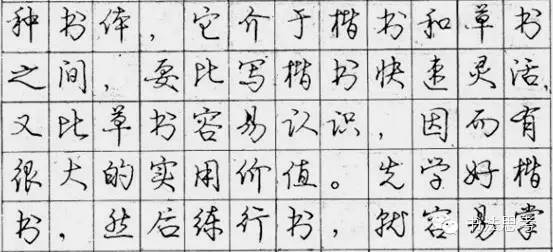 种书体，它介于楷书和草书
之间，要比写楷书快速灵活，
又比草书容易认识，因而有
很大的实用价值。先学好楷
书，然后练行书，就容易掌
书法思考